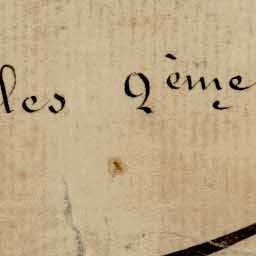 les 2ème